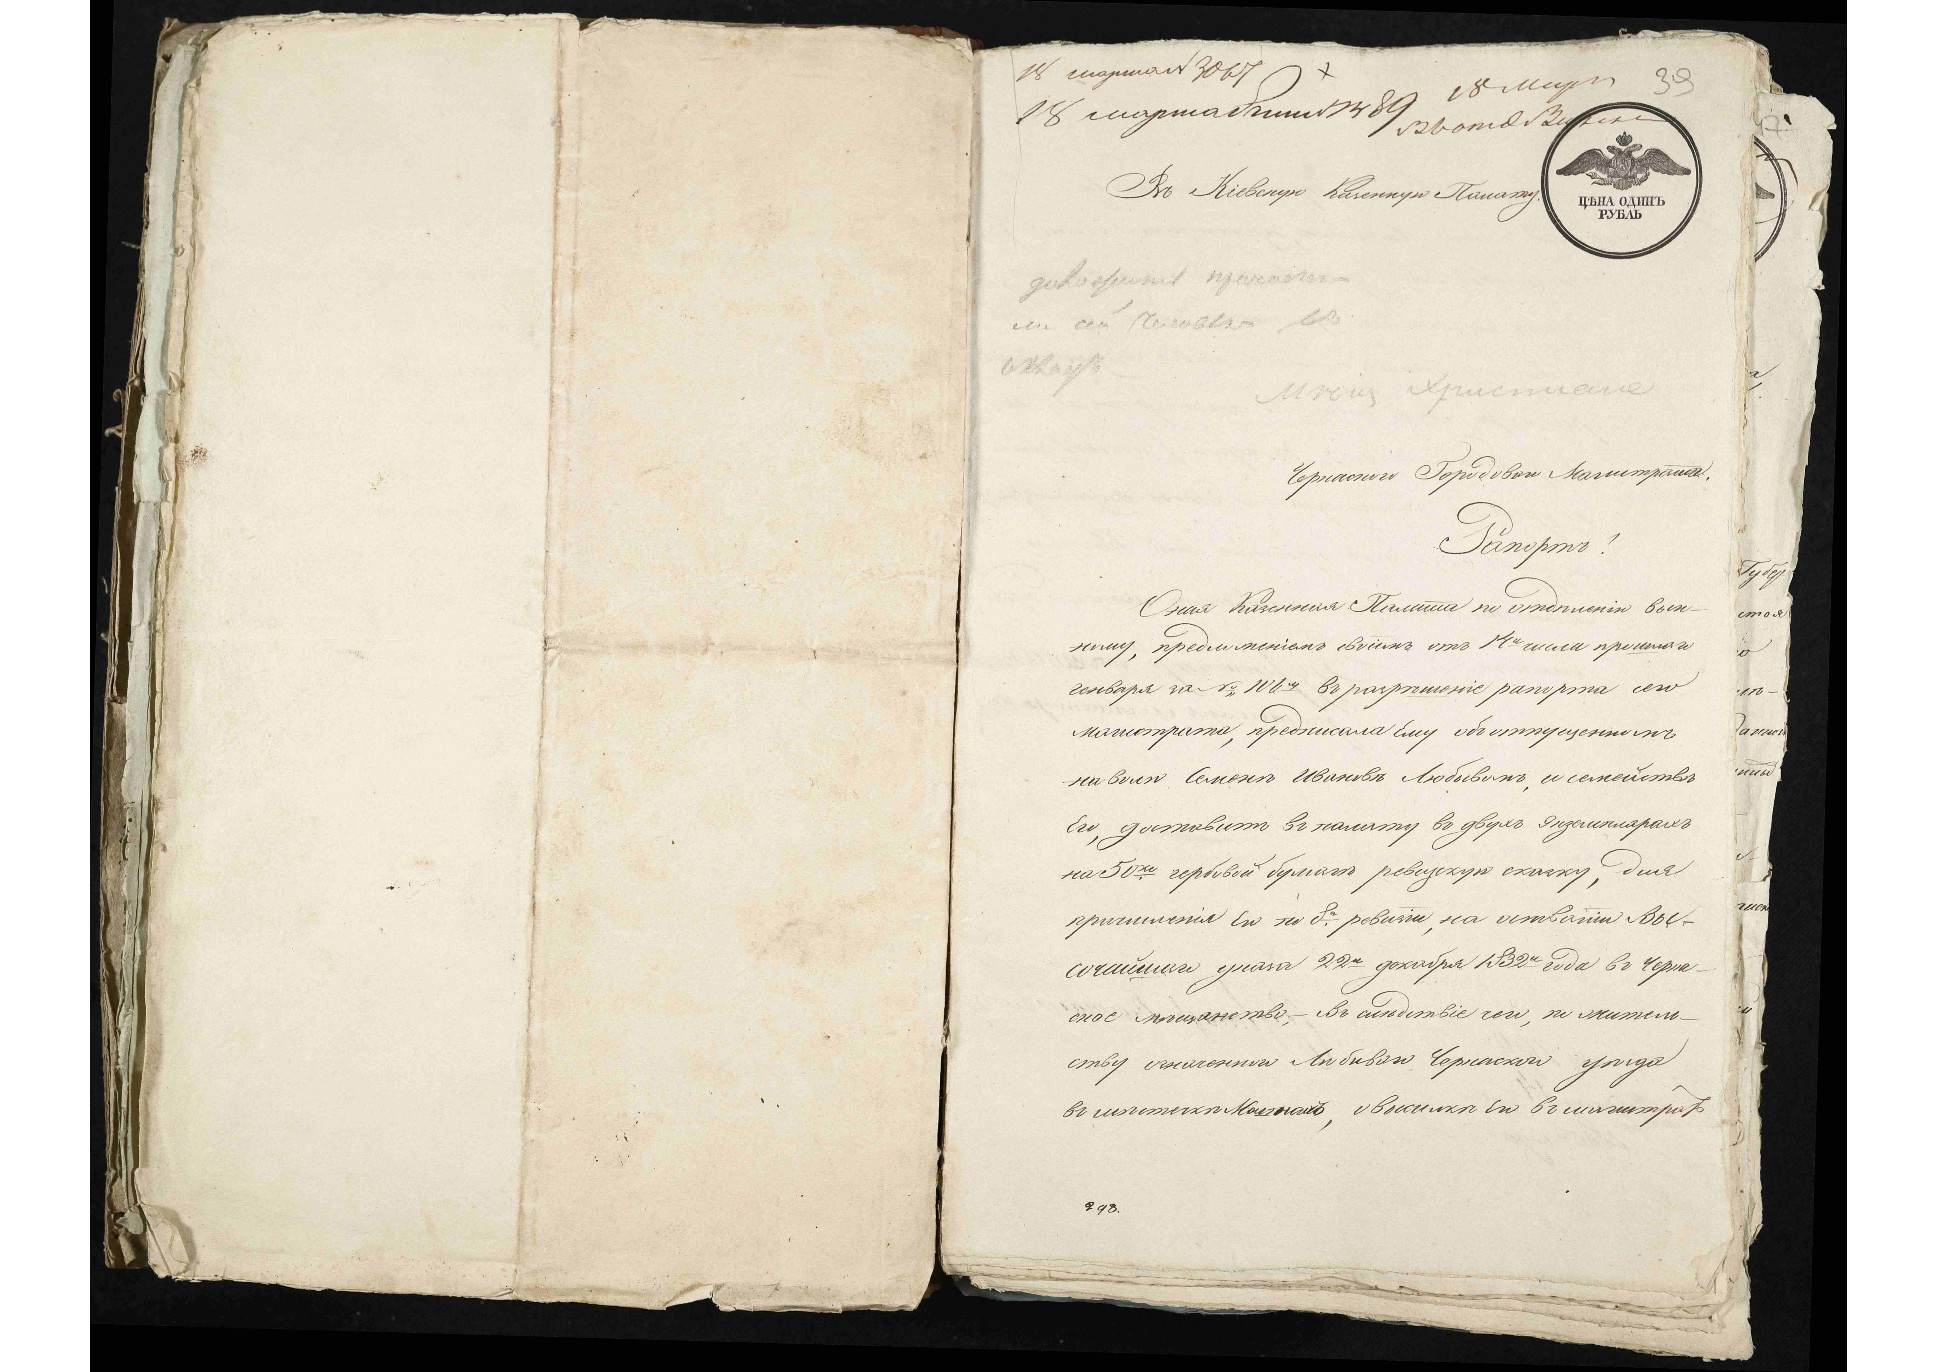 18 марта № 3067
18 марта 89
18 Мар
39
ЦѢНА ОДИНЪ
РУБЛЬ
Въ Кіевскую Казенную Палату.
сей человек въ
окладъ
Христиане
Черкаского Городоваго Магистрата.
Рапортъ!
Оная Казенная Палата по отдѣленію воен-
ному, предложеніемъ своимъ отъ 14го числа прошлаго
генваря за № въ разрешеніе рапорта сего
магистрата, предписала Ему объ отпущенномъ
на волю Семенѣ Ивановѣ Любывомъ, и семействѣ
Его, доставить въ палату въ двухъ Экземплярахъ
на 50ко гербовой бумагѣ ревизскую сказку, для
причисленія Его по 8й ревизіи, на оставаніи Вы-
сочайшаго указа 22го декабря 1832го года въ Черка-
ское мещанство,- Въ следствіе чего, по житель-
ству означенного Любываго Черкаского уезда
въ местечкѣ, о высилкѣ Его въ магистратъ
298.